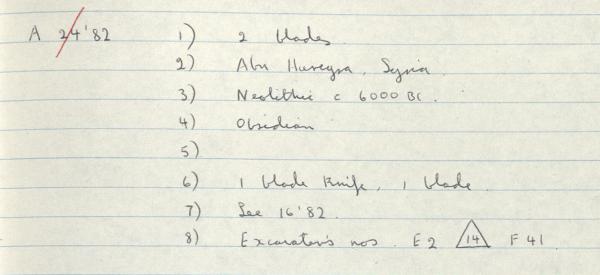 A 24'82 1) 2 blades.
2) Abu Hureyra, Syria
3) Neolithic c 6000 BC.
4) Obsidian
5)
6) 1 blade knife, 1 blade.
7) See 16'82.
8) Excavator's nos. E2 14 F41